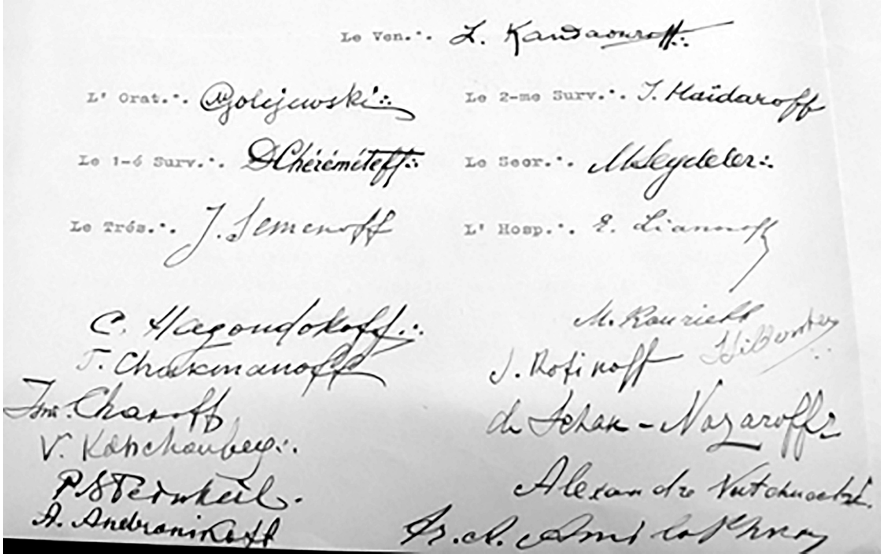 Le Ven.·. L. Kandaouroff.·.
L' Orat.·. Golijewski.·. Le 2-me Surv.·. I. Haïdaroff
Le 1-é Surv.·. D Chéréméteff.·. Le Secr.·. M Seydeler.·.
Le Trés.·. J. Semenoff L' Hosp.·. E. Lianosoff
C. Hagondokoff.·. M. Kourieff
T. Chakmanoff J. Rotinoff
Charoff de Schak-Nazaroff
V. Kotschoubey.·. Alexandre
P. Steinheil.
A. Andronikoff